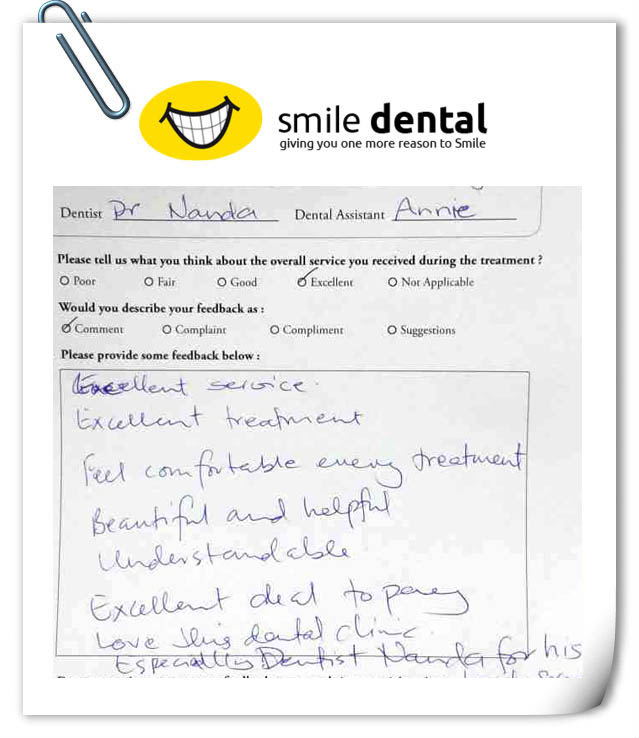 smile dental
giving you one more reason to Smile
Dentist Dr Nanda Dental Assistant Annie
Please tell us what you think about the overall service you received during the treatment ?
Poor Fair Good Excellent Not Applicable
Would you describe your feedback as :
Comment Complaint Compliment Suggestions
Please provide some feedback below :
Excellent service.
Excellent treatment
Feel comfortable every treatment
Beautiful and helpful
Understandable
Excellent deal to
Love this dental clinic.
Especially Dentist Nanda for his